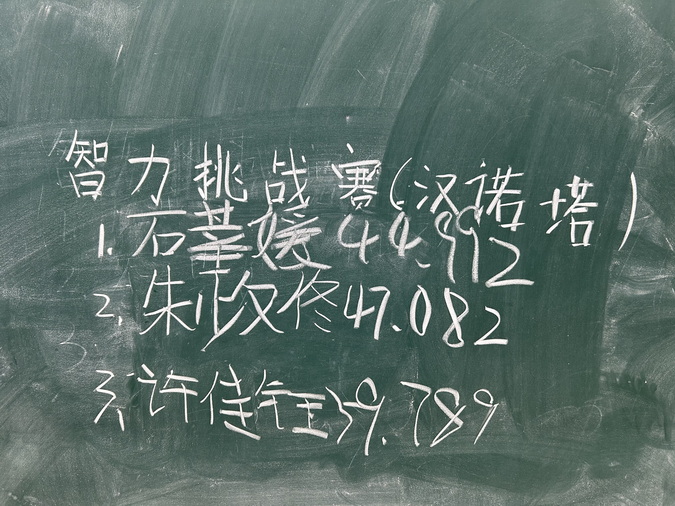 智力挑战赛(汉诺塔)
1. 石媛 44.992
2. 朱佟 47.082
3. 许佳钰 39.789